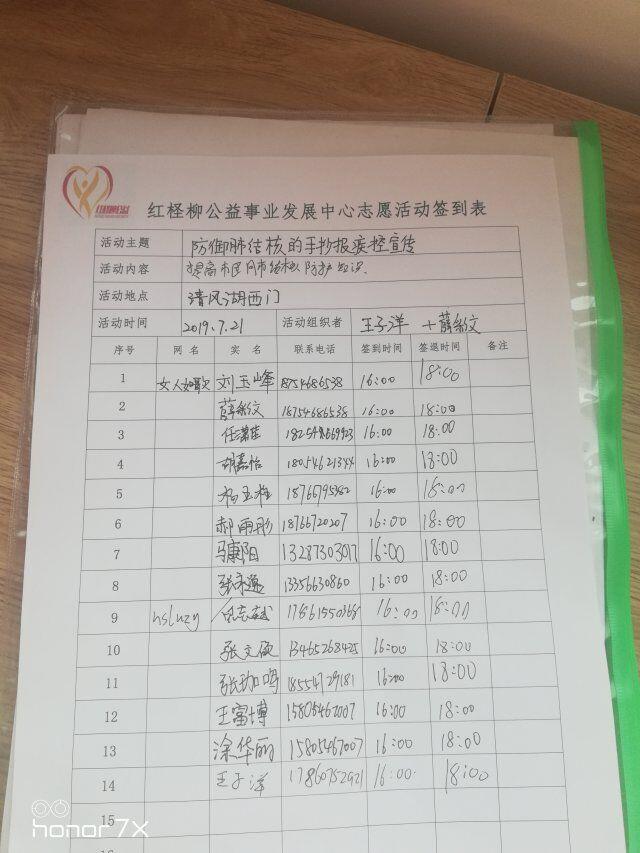 红柽柳公益事业发展中心志愿活动签到表
活动主题 防御肺结核的手抄报疫控宣传
活动内容 提高市民 防护知识.
活动地点 清风湖西门
活动时间 2019.7.21 活动组织者 王子洋 +薛彩文
序号 网名 实名 联系电话 签到时间 签退时间 备注
1 女人如歌 刘玉峰 18754686538 16:00 18:00
2 薛彩文 18754686538 16:00 18:00
3 任潇佳 16:00 18:00
4 胡嘉怡 18054621344 16:00 18:00
5 杨玉柱 16:00 18:00
6 郝雨彤 18766720207 16:00 18:00
7 马康阳 13287303017 16:00 18:00
8 13356630860 16:00 18:00
9 17861550368 16:00 18:00
10 张文硕 13465268425 16:00 18:00
11 张珈鸣 18554729181 16:00 18:00
12 王富博 15805467007 16:00 18:00
13 涂华丽 15805467007 16:00 18:00
14 王子洋 17860752921 16:00 18:00
15
honor 7X